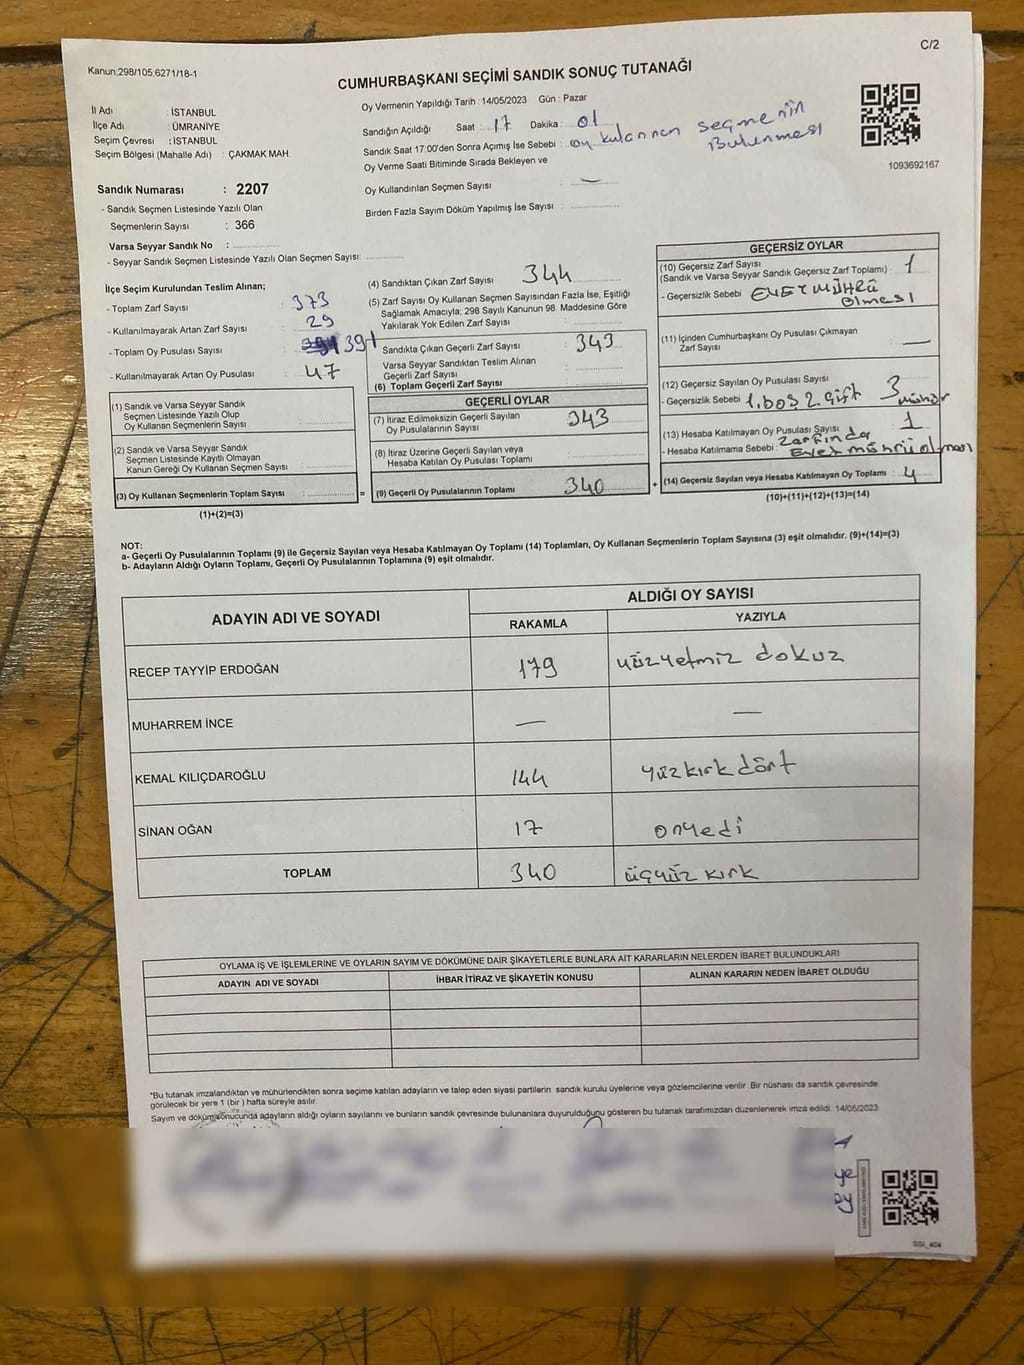 C/2
Kanun;298/105;6271/18-1
CUMHURBAŞKANI SEÇİMİ SANDIK SONUÇ TUTANAĞI
İl Adı : İSTANBUL
İlçe Adı : ÜMRANİYE
Seçim Çevresi : İSTANBUL
Seçim Bölgesi (Mahalle Adı) : ÇAKMAK MAH.
Sandık Numarası : 2207
- Sandık Seçmen Listesinde Yazılı Olan
Seçmenlerin Sayısı : 366
Varsa Seyyar Sandık No :
- Seyyar Sandık Seçmen Listesinde Yazılı Olan Seçmen Sayısı:
Oy Vermenin Yapıldığı Tarih : 14/05/2023 Gün : Pazar
Sandığın Açıldığı Saat : 17 Dakika : 01
Sandık Saat 17:00'den Sonra Açımış İse Sebebi : oy kulannan seçmenin
Bulunması
Oy Verme Saati Bitiminde Sırada Bekleyen ve
Oy Kullandırılan Seçmen Sayısı : —
Birden Fazla Sayım Döküm Yapılmış İse Sayısı :
1093692167
İlçe Seçim Kurulundan Teslim Alınan;
- Toplam Zarf Sayısı : 373
- Kullanılmayarak Artan Zarf Sayısı : 29
- Toplam Oy Pusulası Sayısı : 391
- Kullanılmayarak Artan Oy Pusulası : 47
(1) Sandık ve Varsa Seyyar Sandık
Seçmen Listesinde Yazılı Olup
Oy Kullanan Seçmenlerin Sayısı :
(2) Sandık ve Varsa Seyyar Sandık
Seçmen Listesinde Kayıtlı Olmayan
Kanun Gereği Oy Kullanan Seçmen Sayısı :
(3) Oy Kullanan Seçmenlerin Toplam Sayısı : =
(1)+(2)=(3)
(4) Sandıktan Çıkan Zarf Sayısı : 344
(5) Zarf Sayısı Oy Kullanan Seçmen Sayısından Fazla İse, Eşitliği
Sağlamak Amacıyla; 298 Sayılı Kanunun 98. Maddesine Göre
Yakılarak Yok Edilen Zarf Sayısı :
Sandıkta Çıkan Geçerli Zarf Sayısı : 343
Varsa Seyyar Sandıktan Teslim Alınan
Geçerli Zarf Sayısı :
(6) Toplam Geçerli Zarf Sayısı :
GEÇERLİ OYLAR
(7) İtiraz Edilmeksizin Geçerli Sayılan
Oy Pusulalarının Sayısı : 343
(8) İtiraz Üzerine Geçerli Sayılan veya
Hesaba Katılan Oy Pusulası Toplamı :
(9) Geçerli Oy Pusulalarının Toplamı : 340 +
GEÇERSİZ OYLAR
(10) Geçersiz Zarf Sayısı
(Sandık ve Varsa Seyyar Sandık Geçersiz Zarf Toplamı) : 1
- Geçersizlik Sebebi : EVET MÜHRÜ
Olması
(11) İçinden Cumhurbaşkanı Oy Pusulası Çıkmayan
Zarf Sayısı : —
(12) Geçersiz Sayılan Oy Pusulası Sayısı : 3
- Geçersizlik Sebebi : 1.boş 2.çift mühür
(13) Hesaba Katılmayan Oy Pusulası Sayısı : 1
- Hesaba Katılmama Sebebi : Zarfında
Evet mührü olması
(14) Geçersiz Sayılan veya Hesaba Katılmayan Oy Toplamı : 4
(10)+(11)+(12)+(13)=(14)
NOT:
a- Geçerli Oy Pusulalarının Toplamı (9) ile Geçersiz Sayılan veya Hesaba Katılmayan Oy Toplamı (14) Toplamları, Oy Kullanan Seçmenlerin Toplam Sayısına (3) eşit olmalıdır. (9)+(14)=(3)
b- Adayların Aldığı Oyların Toplamı, Geçerli Oy Pusulalarının Toplamına (9) eşit olmalıdır.
ADAYIN ADI VE SOYADI
ALDIĞI OY SAYISI
RAKAMLA YAZIYLA
RECEP TAYYİP ERDOĞAN 179 yüzyetmiz dokuz
MUHARREM İNCE — —
KEMAL KILIÇDAROĞLU 144 yüzkırk dört
SİNAN OĞAN 17 onyedi
TOPLAM 340 üçyüz kırk
OYLAMA İŞ VE İŞLEMLERİNE VE OYLARIN SAYIM VE DÖKÜMÜNE DAİR ŞİKAYETLERLE BUNLARA AİT KARARLARIN NELERDEN İBARET BULUNDUKLARI
ADAYIN ADI VE SOYADI İHBAR İTİRAZ VE ŞİKAYETİN KONUSU ALINAN KARARIN NEDEN İBARET OLDUĞU
*Bu tutanak imzalandıktan ve mühürlendikten sonra seçime katılan adayların ve talep eden siyasi partilerin sandık kurulu üyelerine veya gözlemcilerine verilir .Bir nüshası da sandık çevresinde
görülecek bir yere 1 (bir ) hafta süreyle asılır.
Sayım ve döküm sonucunda adayların aldığı oyların sayılarını ve bunların sandık çevresinde bulunanlara duyurulduğunu gösteren bu tutanak tarafımızdan düzenlenerek imza edildi. 14/05/2023
SSI_404